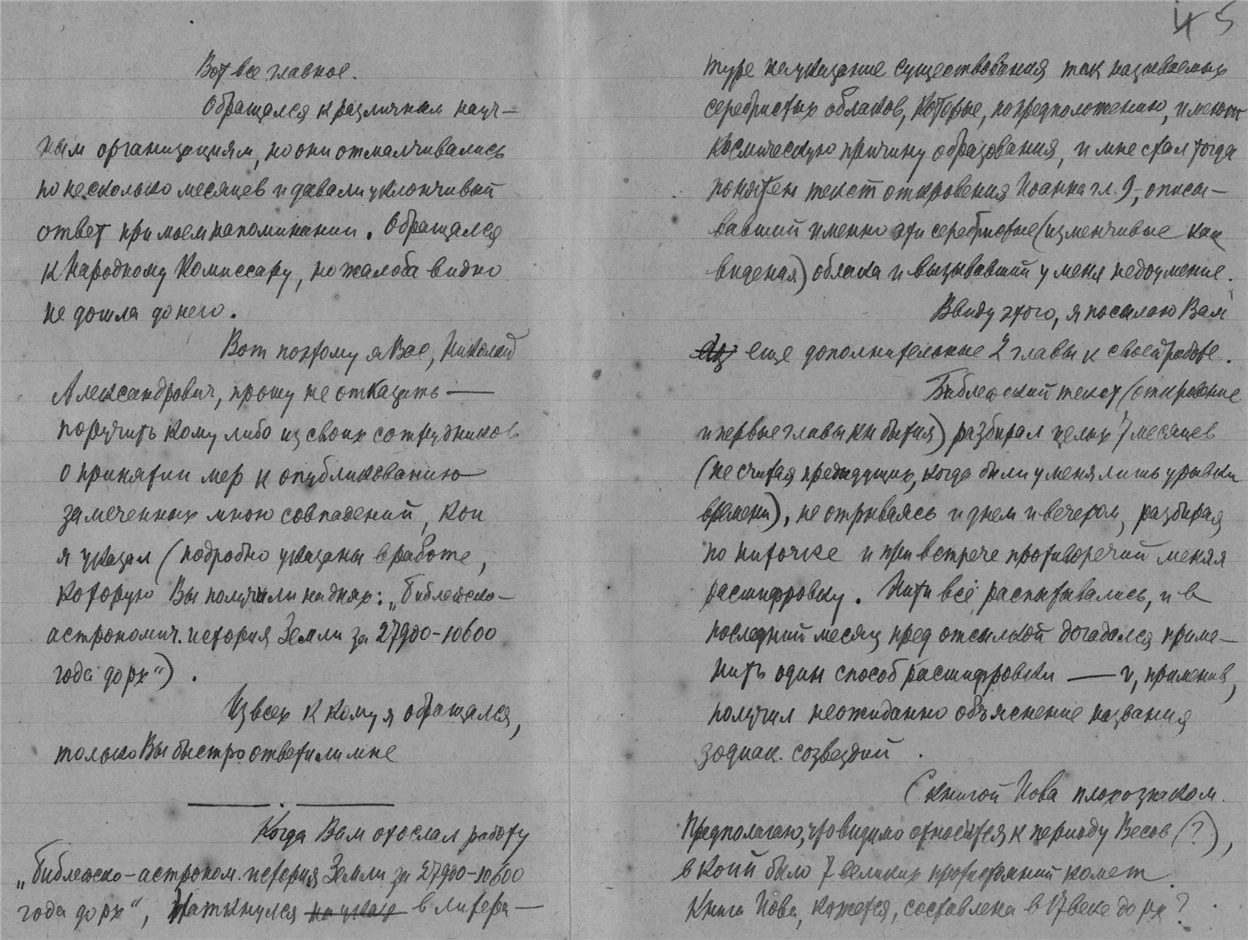 Вот все главное.
Обращался к различным науч-
ным организациям, но они отмалчивались
по несколько месяцев и давали уклончивый
ответ при моем напоминании. Обращался
к Народному Комиссару, но жалоба видно
не дошла до него.
Вот поэтому я Вас, Николай
Александрович, прошу не отказать —
поручить кому либо из своих сотрудников
о принятии мер к опубликованию
замеченных мною совпадений, кои
я указал (подробно указаны в работе,
которую Вы получили на днях: „Библейско-
астрономич. история Земли за 27900-10600
года до рх“).
Из всех к кому я обращался,
только Вы быстро ответили мне
Когда Вам отослал работу
„Библейско-астроном. история Земли за 27900-10600
года до рх“, наткнулся на указ в литера-
45
туре на указание существования так называемых
серебристых облаков, которые, по предположению, имеют
космическую причину образования, и мне стал тогда
понятен текст откровения Иоанна гл. 9, описы-
вавший именно эти серебристые (изменчивые как
видения) облака и вызывавший у меня недоумение.
Ввиду этого, я посылаю Вам
еще дополнительные 2 главы к своей работе.
Библейский текст (откровение
и первые главы кн бытия) разбирал целых 7 месяцев
(не считая предыдущих, когда были у меня лишь урывки
времени), не отрываясь и днем и вечером, разбирая
по ниточке и при встрече противоречий меняя
расшифровку. Нити всё распутывались, и в
последний месяц пред отсылкой догадался приме-
нить один способ расшифровки — и, применив,
получил неожиданно объяснение названия
зодиак. созвездий.
С книгой Иова плохо знаком.
Предполагаю, что видимо относится к периоду Весов (?),
в кой было 7 великих прохождений комет.
Книга Иова, кажется, составлена в 17 веке до рх?